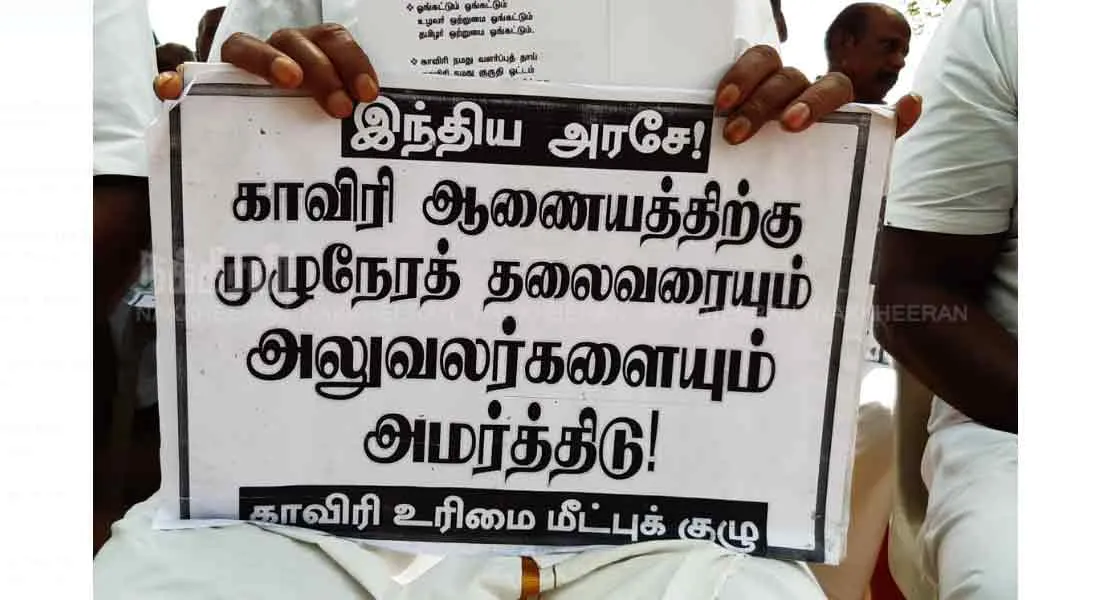 ❖ ஓங்கட்டும் ஓங்கட்டும்
உழவர் ஒற்றுமை ஓங்கட்டும்
தமிழர் ஒற்றுமை ஓங்கட்டும்.
❖ காவிரி நமது வளர்ப்புத் தாய்
காவிரி நமது குருதி ஓட்டம்
இந்திய அரசே!
காவிரி ஆணையத்திற்கு
முழுநேரத் தலைவரையும்
அலுவலர்களையும்
அமர்த்திடு!
காவிரி உரிமை மீட்புக் குழு